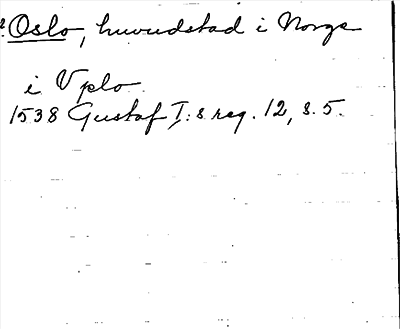 Oslo, huvudstad i Norge
i Vplo
1538 Gustaf I:s reg. 12, s. 5.